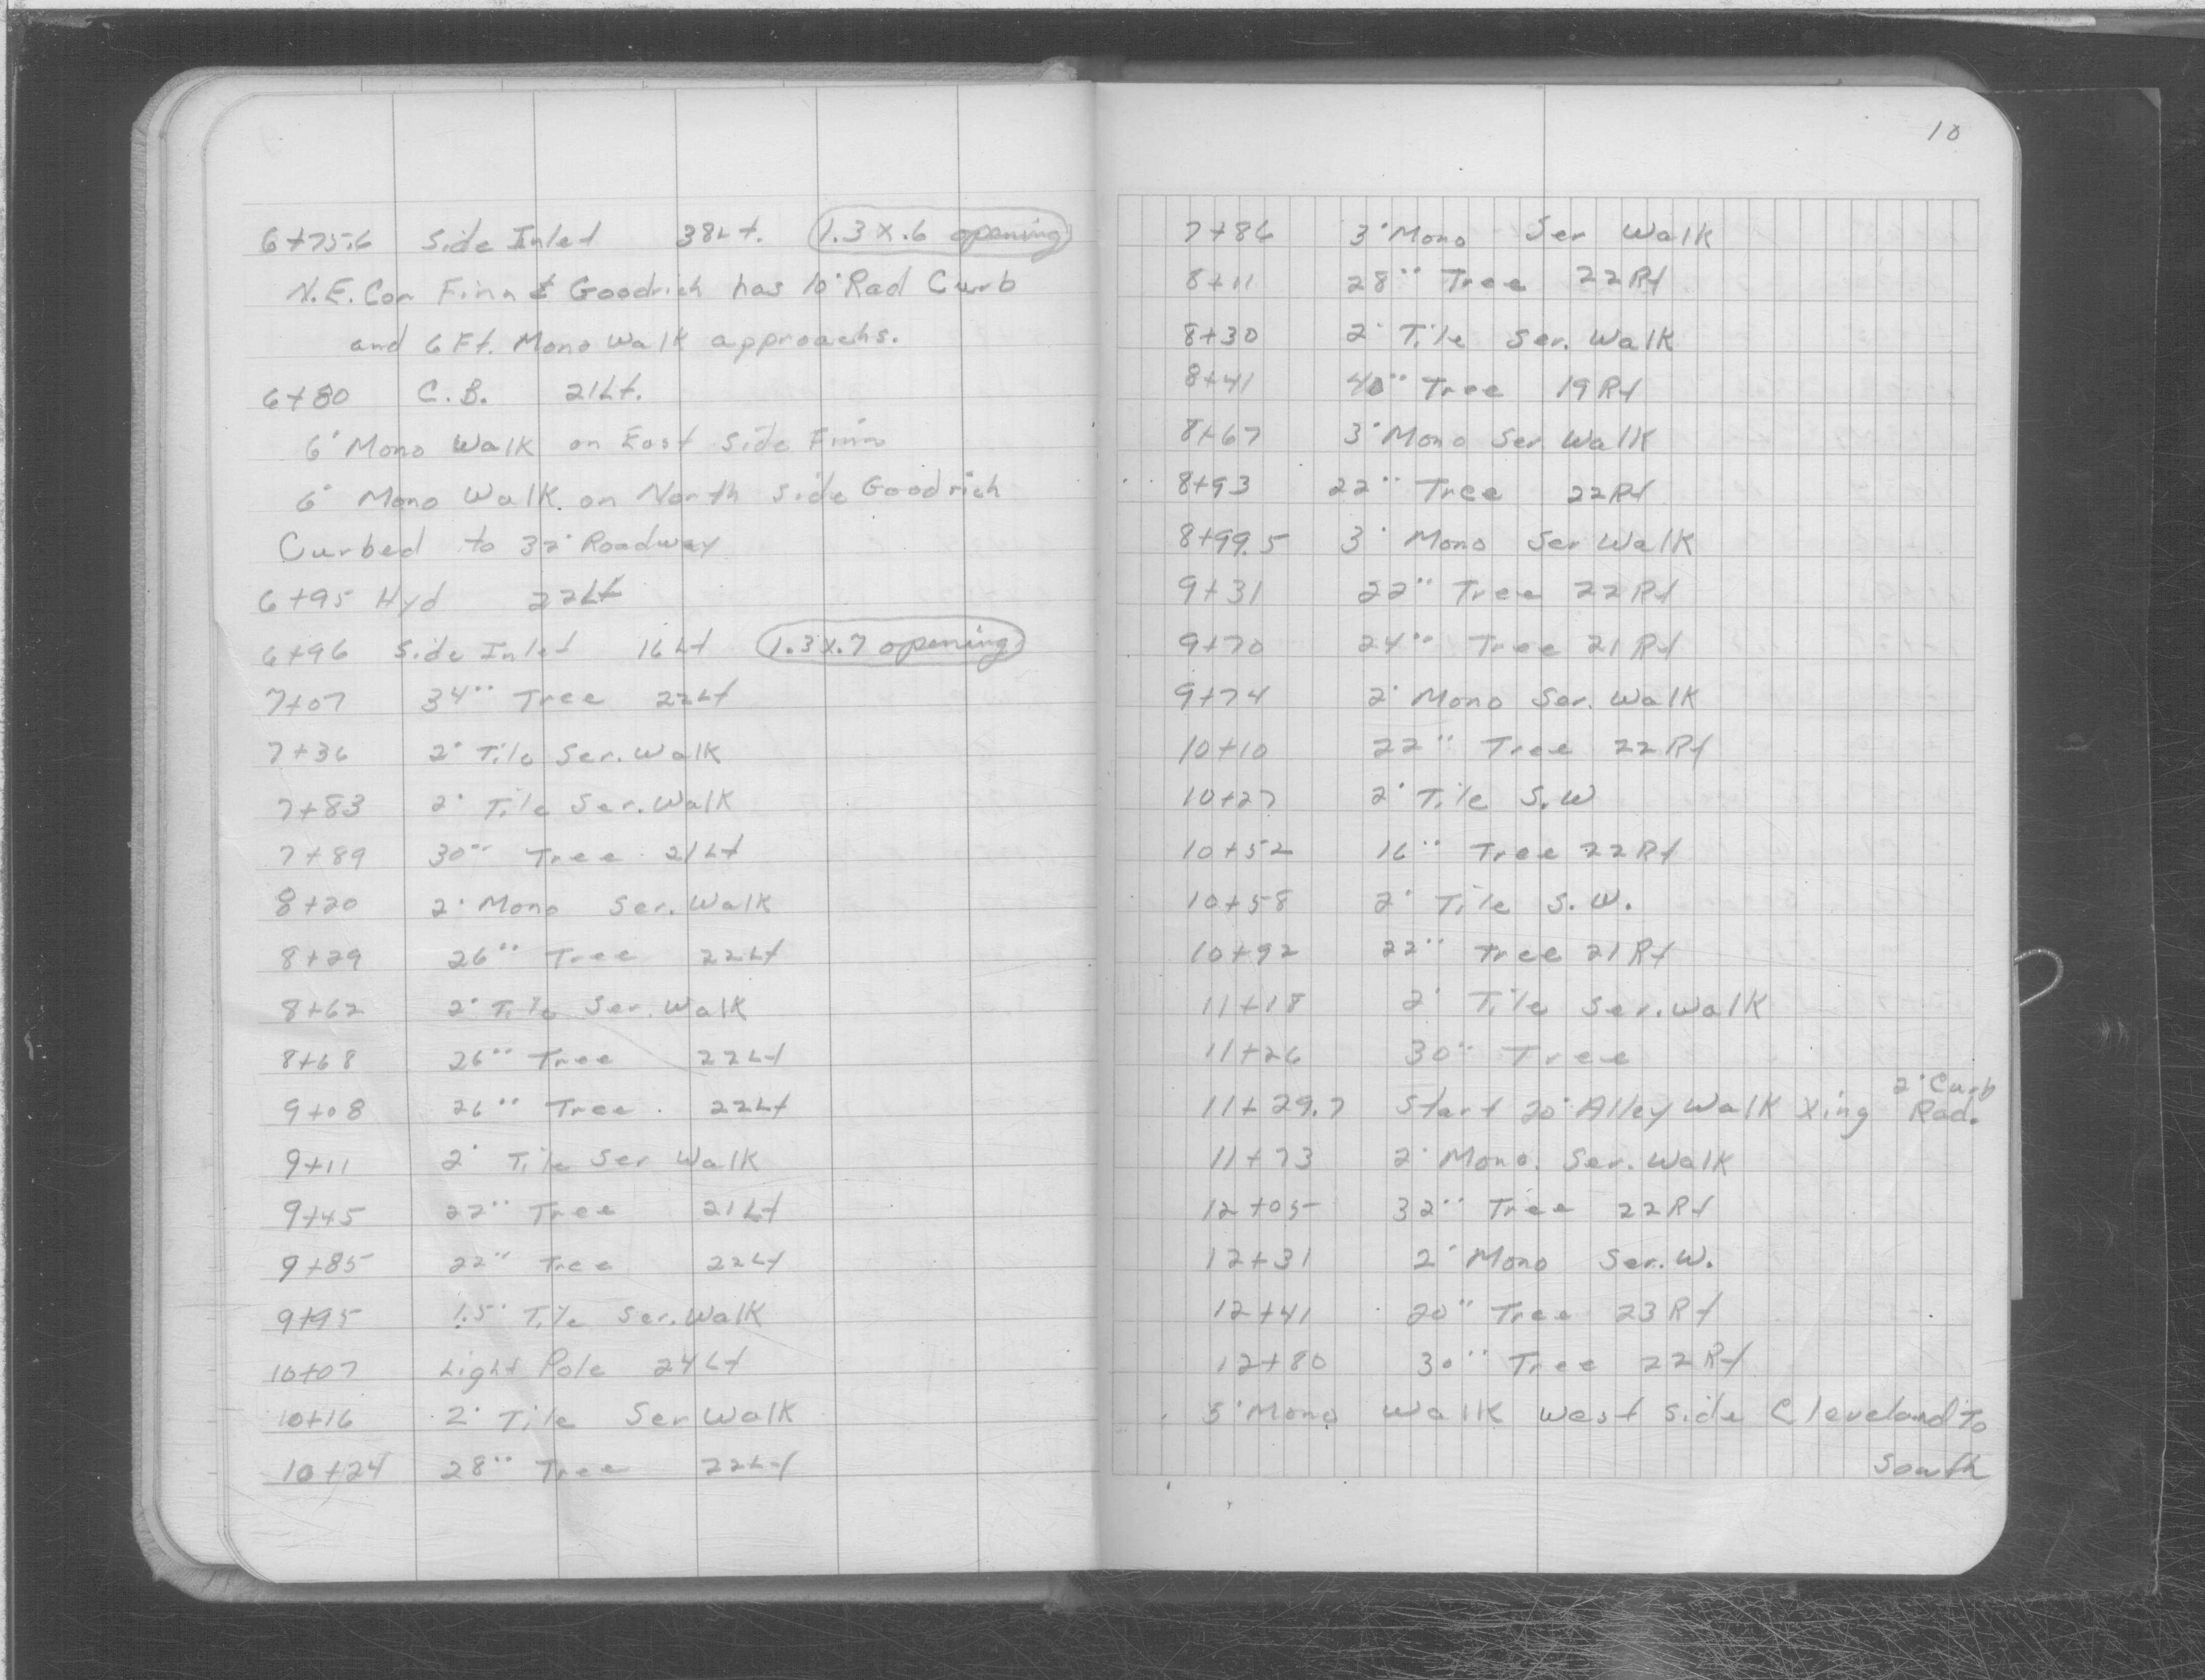 6+75.6 Side Inlet 38Lt. 1.3x.6 opening
N.E. Cor Finn & Goodrich has 10' Rad Curb
and 6 Ft. Mono Walk approachs.
6+80 C.B. 21Lt.
6' Mono Walk on East Side Finn
6' Mono Walk on North Side Goodrich
Curbed to 32' Roadway
6+95 Hyd 22Lt
6+96 Side Inlet 16Lt 1.3x.7 opening
7+07 34" Tree 22Lt
7+36 2' Tile Ser. Walk
7+83 2' Tile Ser. Walk
7+89 30" Tree 21Lt
8+20 2' Mono Ser. Walk
8+29 26" Tree 22Lt
8+62 2' Tile Ser. Walk
8+68 26" Tree 22Lt
9+08 26" Tree 22Lt
9+11 2' Tile Ser Walk
9+45 22" Tree 21Lt
9+85 22" Tree 22Lt
9+95 1.5' Tile Ser. Walk
10+07 Light Pole 24Lt
10+16 2' Tile Ser Walk
10+24 28" Tree 22Lt
10
7+86 3' Mono Ser Walk
8+11 28" Tree 22Rt
8+30 2' Tile Ser. Walk
8+41 40" Tree 19Rt
8+67 3' Mono Ser. Walk
8+93 22" Tree 22Rt
8+99.5 3' Mono Ser Walk
9+31 22" Tree 22Rt
9+70 24" Tree 21Rt
9+74 2' Mono Ser. Walk
10+10 22" Tree 22Rt
10+27 2' Tile S.W
10+52 16" Tree 22Rt
10+58 2' Tile S.W.
10+92 22" Tree 21Rt
11+18 2' Tile Ser. Walk
11+26 30" Tree
2' Curb
11+29.7 Start 20' Alley Walk Xing Rad.
11+73 2' Mono. Ser. Walk
12+05 32" Tree 22Rt
12+31 2' Mono Ser. W.
12+41 20" Tree 23Rt
12+80 30" Tree 22Rt
5' Mono Walk West Side Cleveland To
South